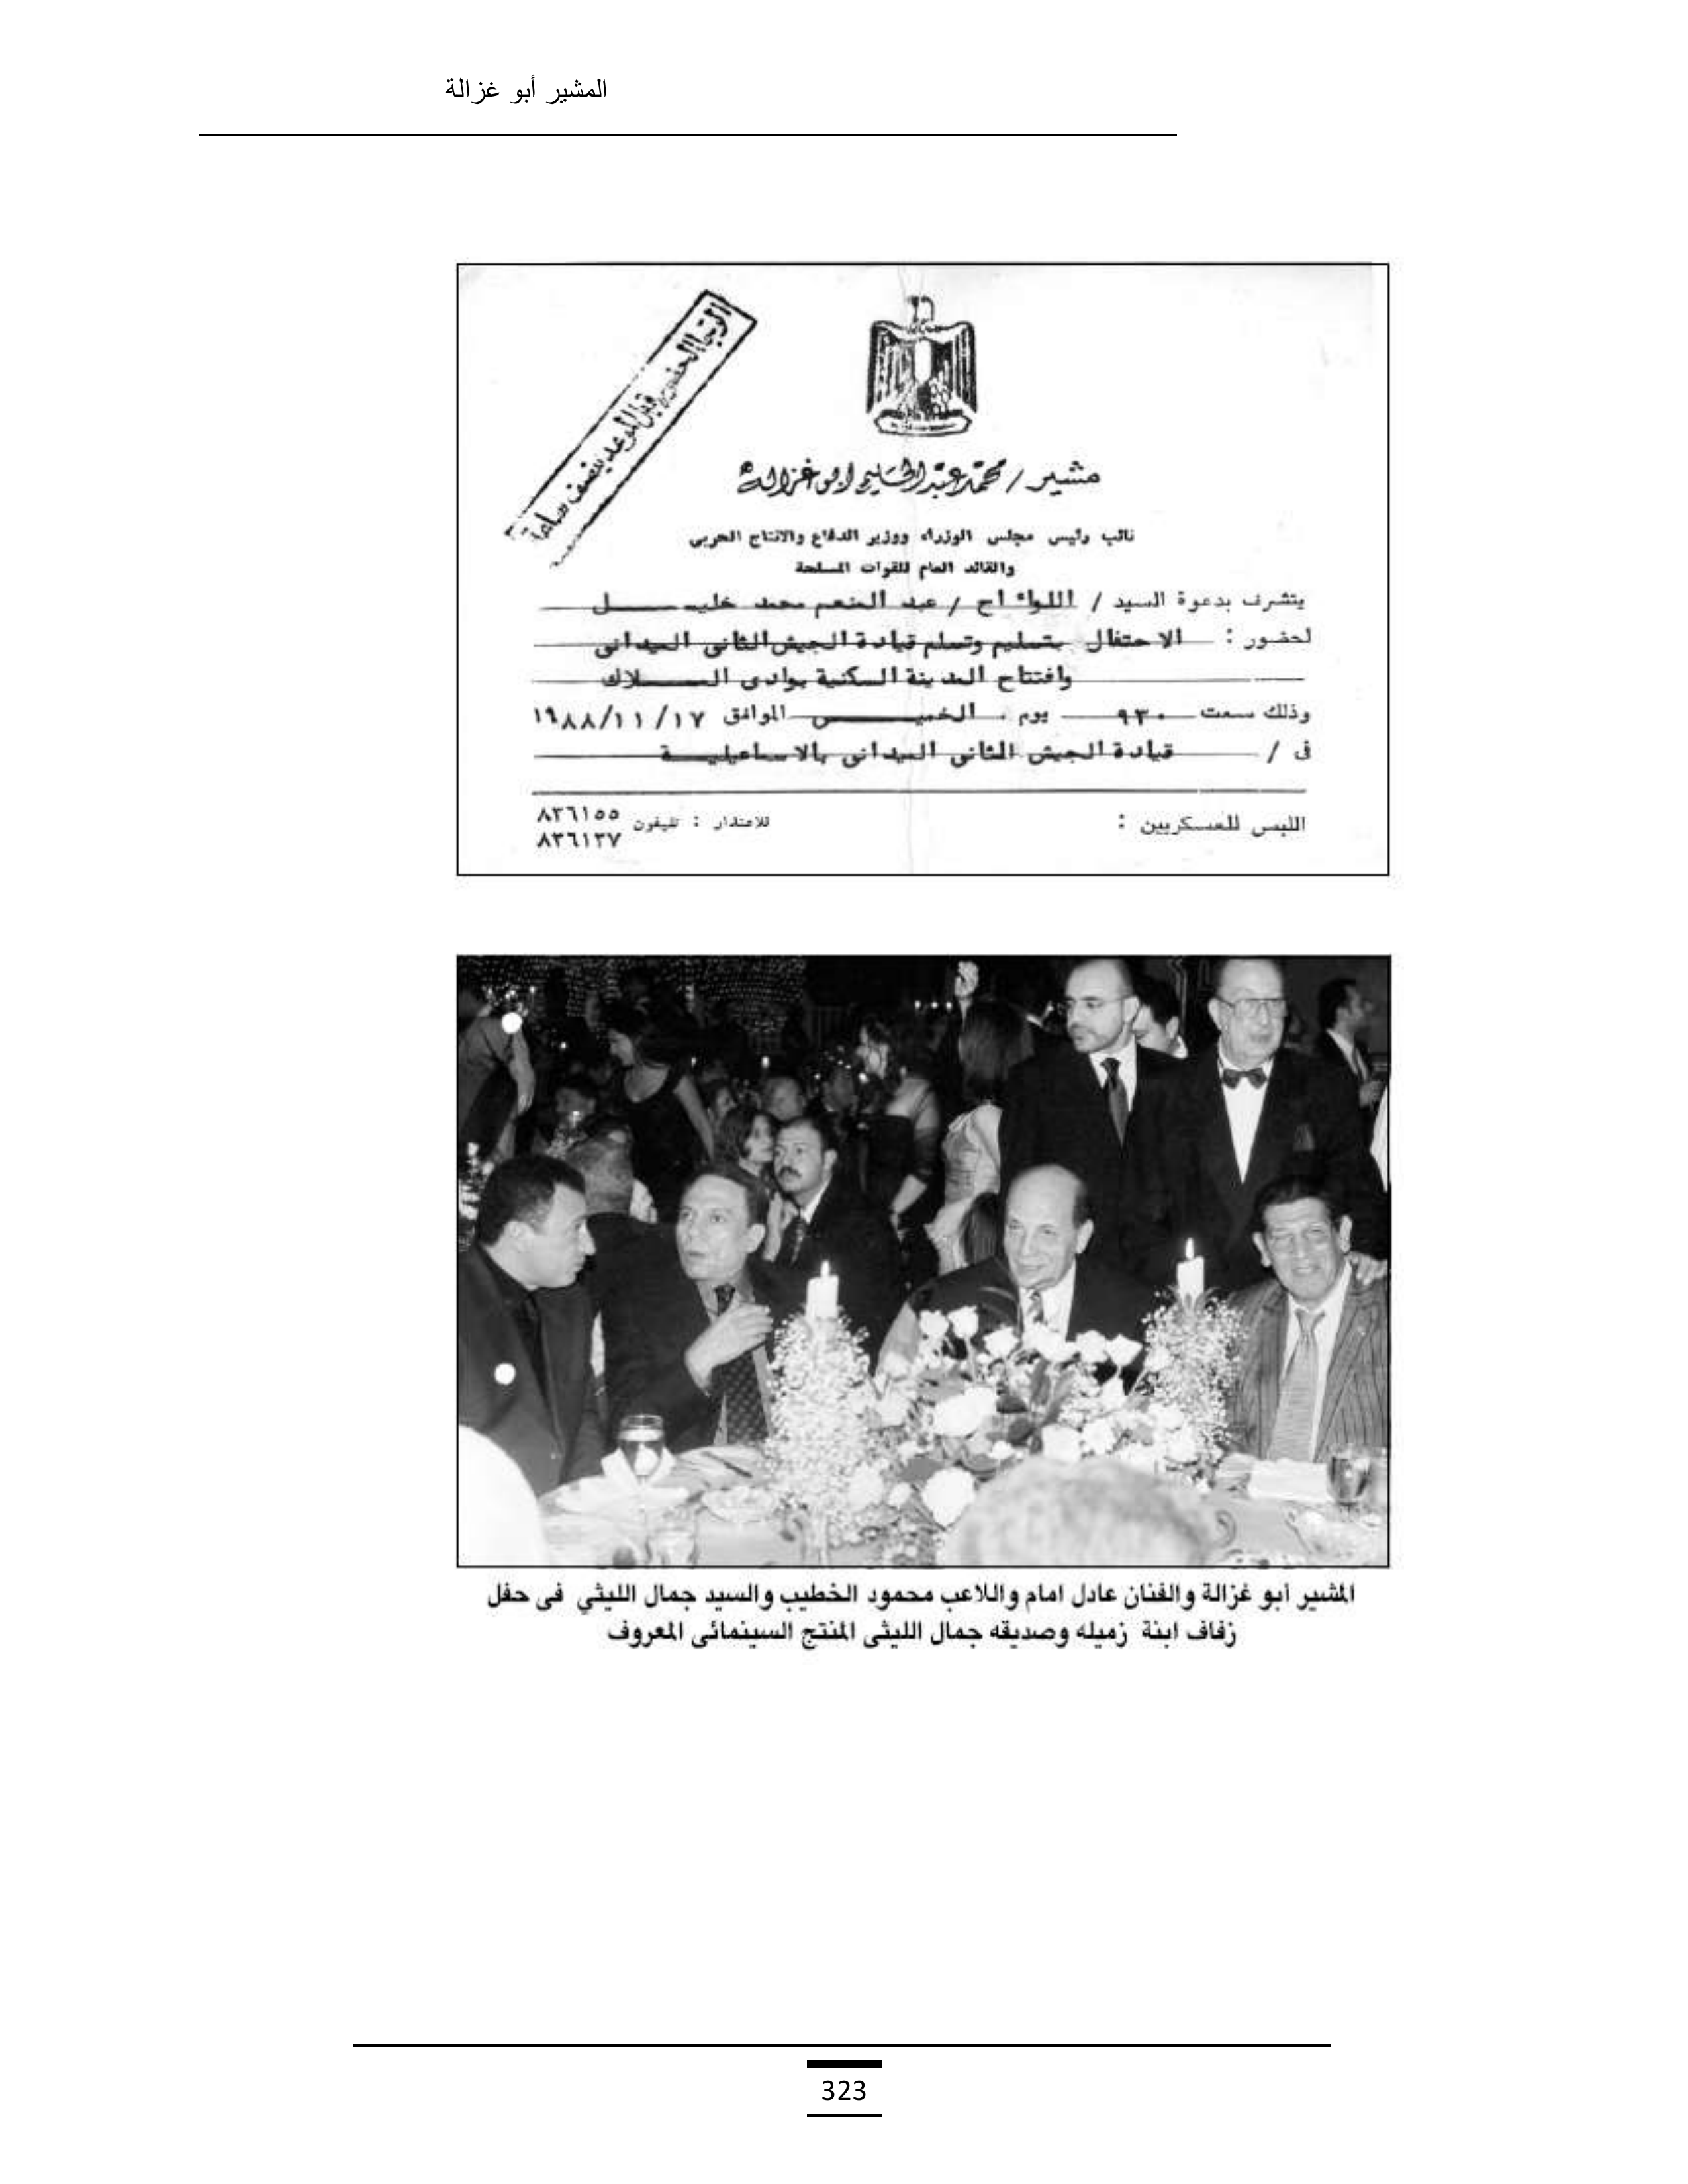 المشير أبو غزالة
الرجا الحضور قبل الموعد بنصف ساعة
مشير / محمد عبد الحليم ابو غزالة
نائب رئيس مجلس الوزراء ووزير الدفاع والانتاج الحربى
والقائد العام للقوات المسلحة
يتشرف بدعوة السيد / اللواء أح / عبد المنعم محمد خليل
لحضور : الاحتفال بتسليم وتسلم قيادة الجيش الثانى الميدانى
وافتتاح المدينة السكنية بوادى الملاك
وذلك سعت ٩٣٠ يوم الخميس الموافق ١٩٨٨/١١/١٧
فى / قيادة الجيش الثانى الميدانى بالاسماعيلية
اللبس للعسكريين : للاعتذار : تليفون ٨٣٦١٥٥
٨٣٦١٣٧
المشير أبو غزالة والفنان عادل امام واللاعب محمود الخطيب والسيد جمال الليثي فى حفل
زفاف ابنة زميله وصديقه جمال الليثى المنتج السينمائى المعروف
323